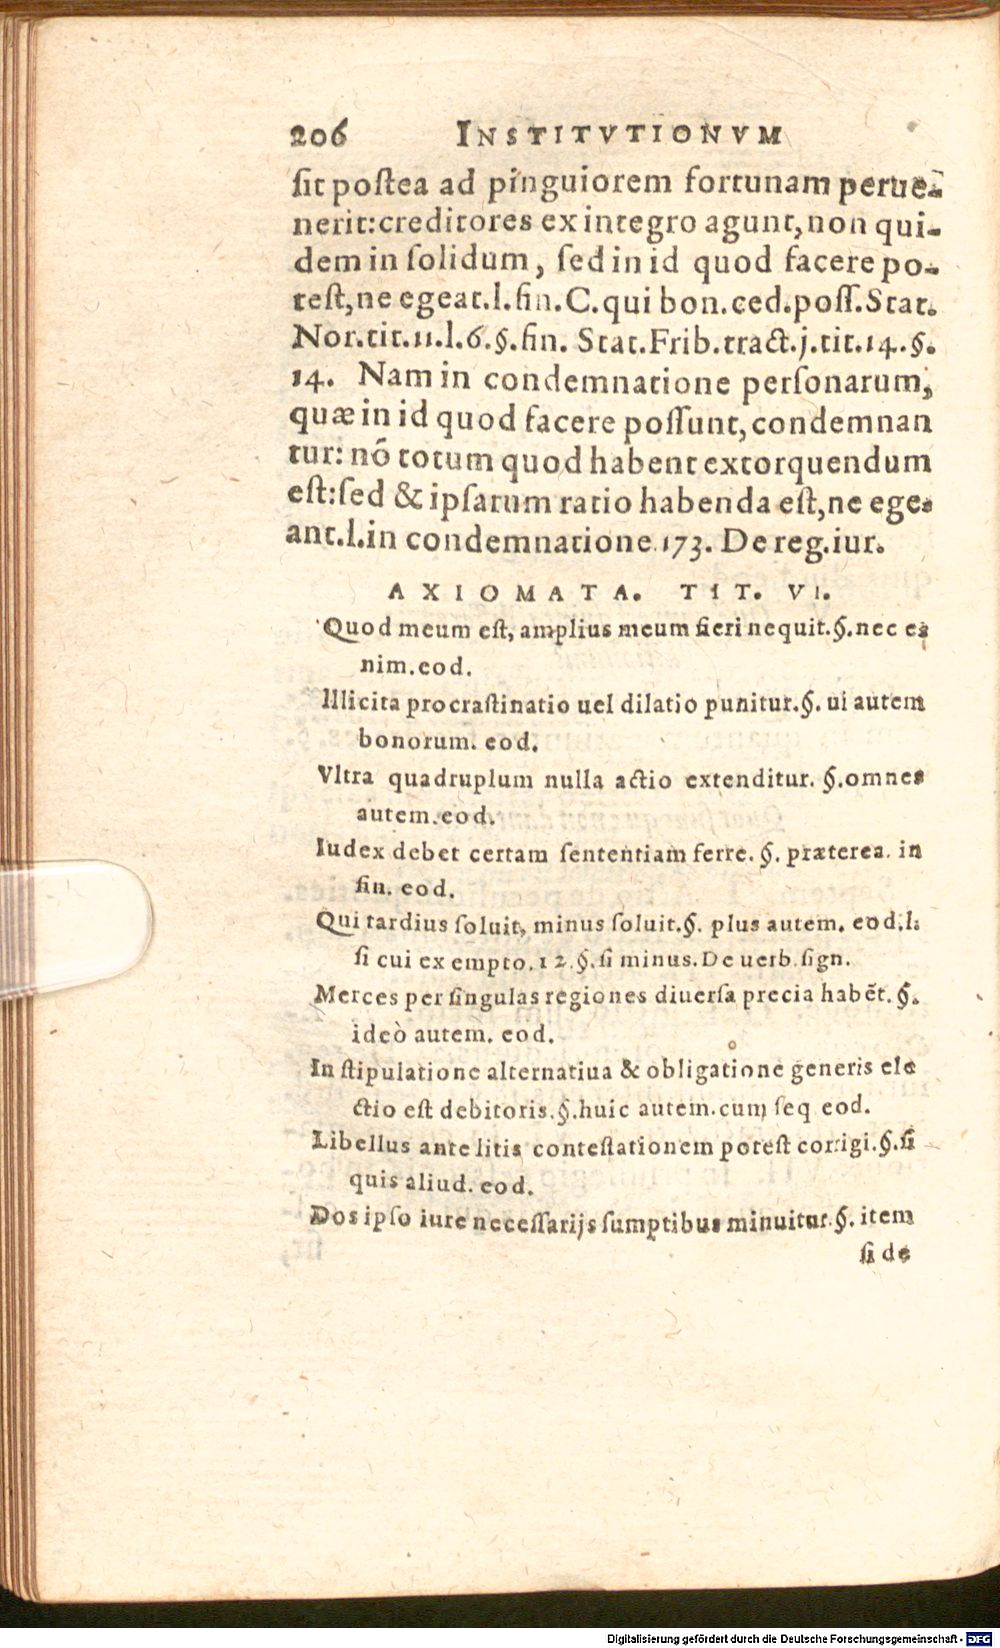 206 INSTITVTIONVM
sit postea ad pinguiorem fortunam perue-
nerit:creditores ex integro agunt,non qui-
dem in solidum, sed in id quod facere po-
test,ne egeat.l.fin.C.qui bon.ced.poss.Stat.
Nor.tit.11.l.6.§.fin. Stat.Frib.tract.j.tit.14.§.
14. Nam in condemnatione personarum,
quæ in id quod facere possunt,condemnan
tur: nõ totum quod habent extorquendum
est:sed & ipsarum ratio habenda est,ne ege-
ant.l.in condemnatione.173. De reg.iur.
AXIOMATA. TIT. VI.
Quod meum est, amplius meum fieri nequit.§.nec e-
nim.eod.
Illicita procrastinatio uel dilatio punitur.§. ui autem
bonorum. eod.
Vltra quadruplum nulla actio extenditur. §.omnes
autem.eod.
Iudex debet certam sententiam ferre. §. præterea. in
fin. eod.
Qui tardius soluit, minus soluit.§. plus autem. eod.l.
si cui ex empto.12.§.si minus.De uerb.sign.
Merces per singulas regiones diuersa precia habẽt.§.
ideò autem. eod.
In stipulatione alternatiua & obligatione generis ele
ctio est debitoris.§.huic autem.cum seq eod.
Libellus ante litis contestationem potest corrigi.§.si
quis aliud. eod.
Dos ipso iure necessarijs sumptibus minuitur.§. item
si de
Digitalisierung gefördert durch die Deutsche Forschungsgemeinschaft - DFG